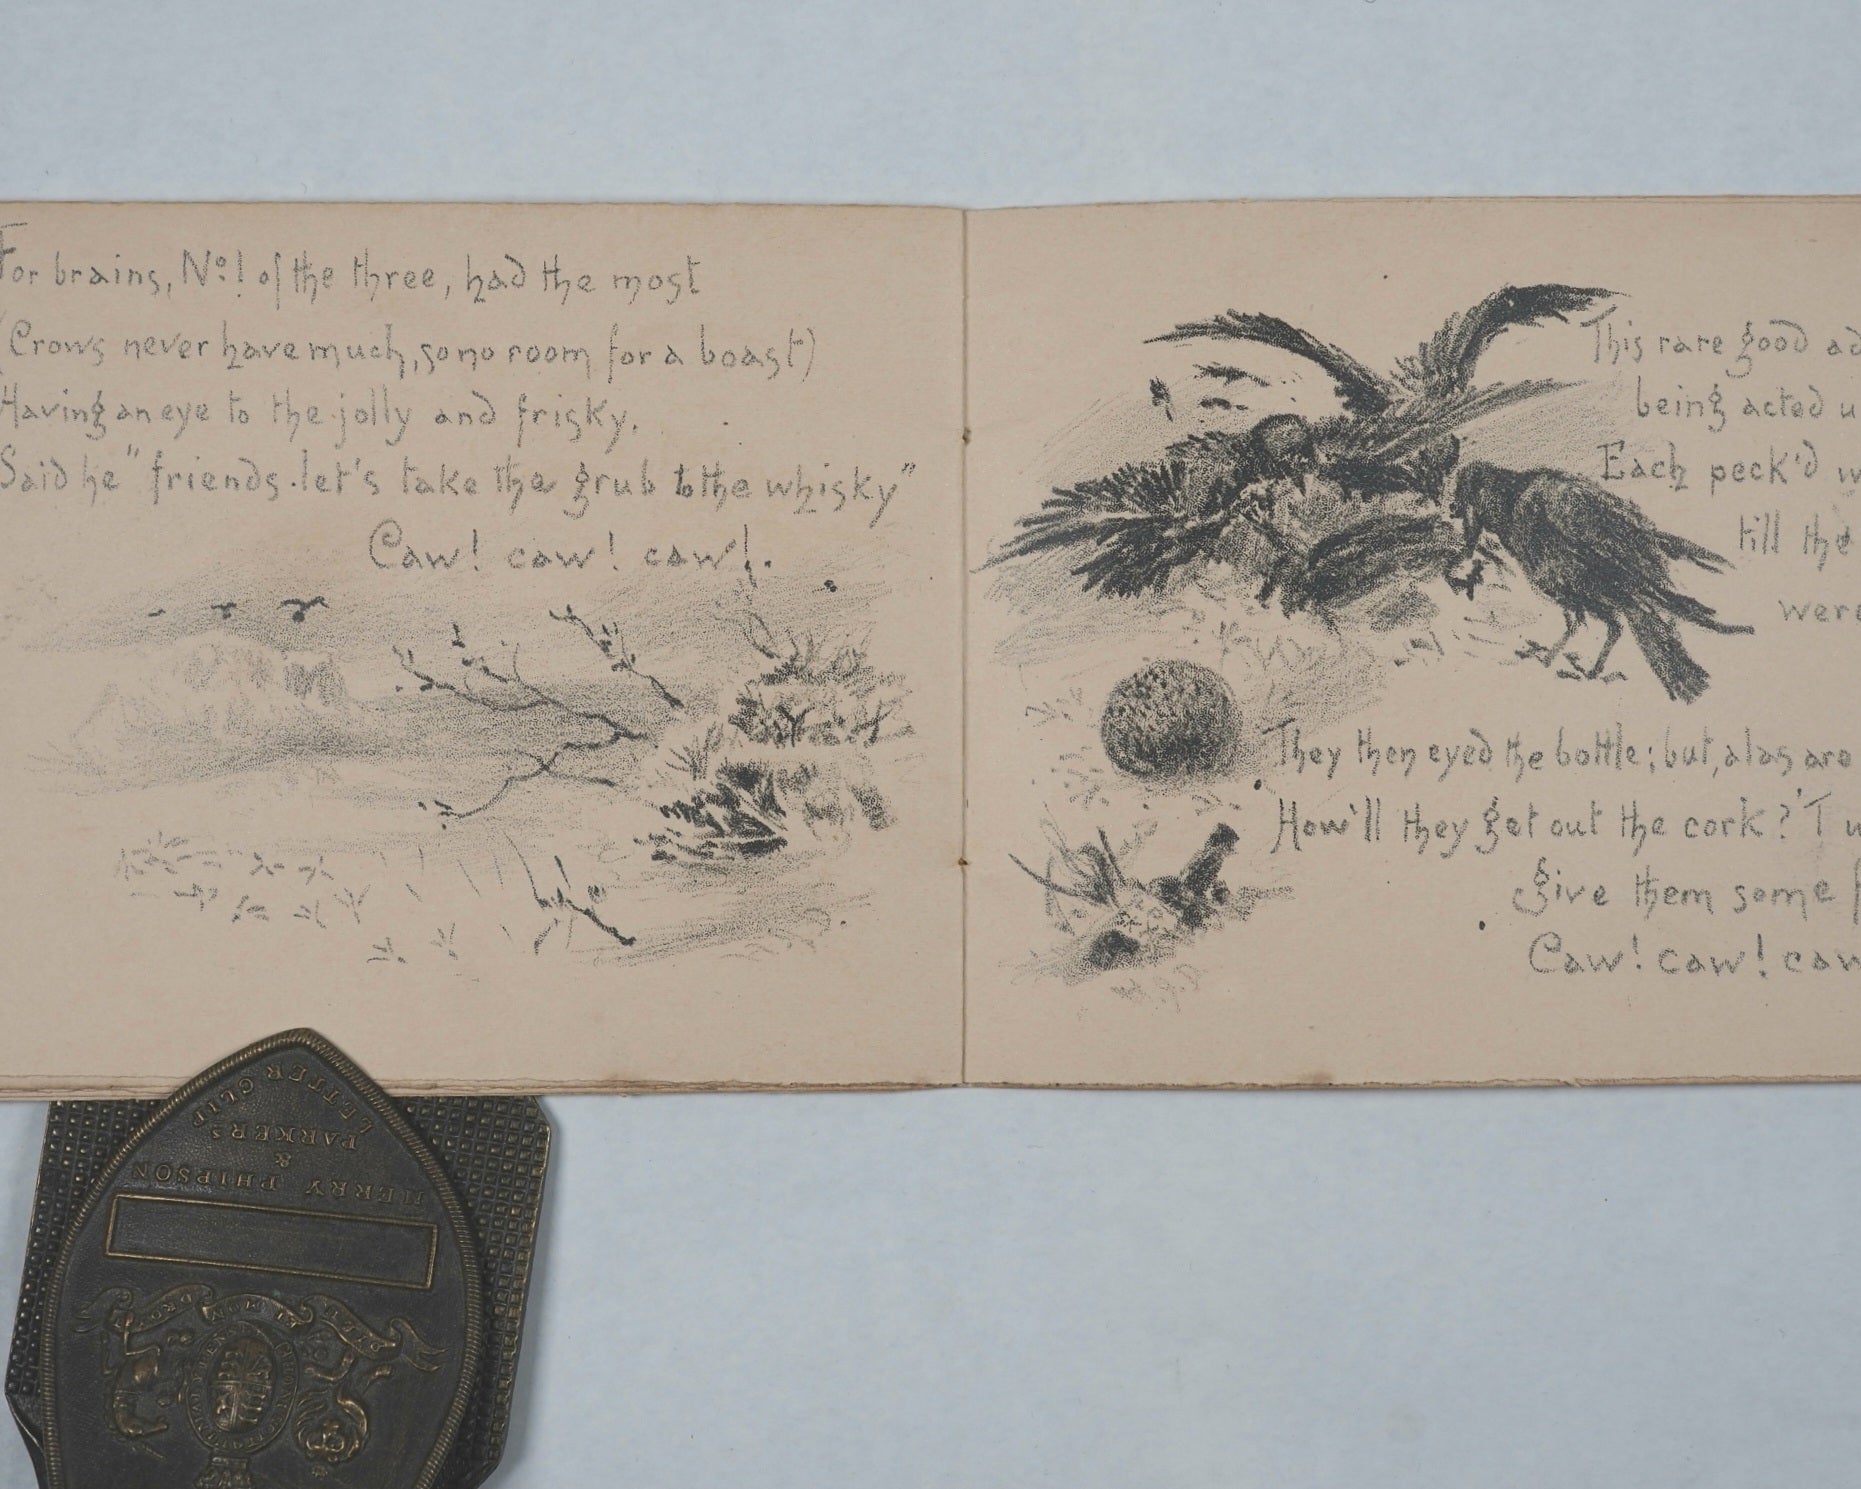 For brains, No. 1 of the three, had the most
(Crows never have much, so no room for a boast)
Having an eye to the jolly and frisky,
Said he "friends. let's take the grub to the whisky"
Caw! caw! caw!.
This rare good
being acted
Each peck'd
till the
were
They then eyed the bottle; but, alas are
How'll they get out the cork?
give them some
Caw! caw! caw
LETTER CLIP
PARKER'S
&
MERRY PHIPSON
DIEU ET MON DROIT